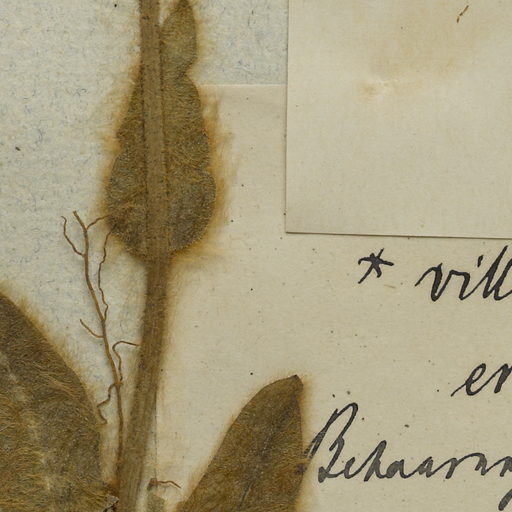 * vill
er
Behaarung